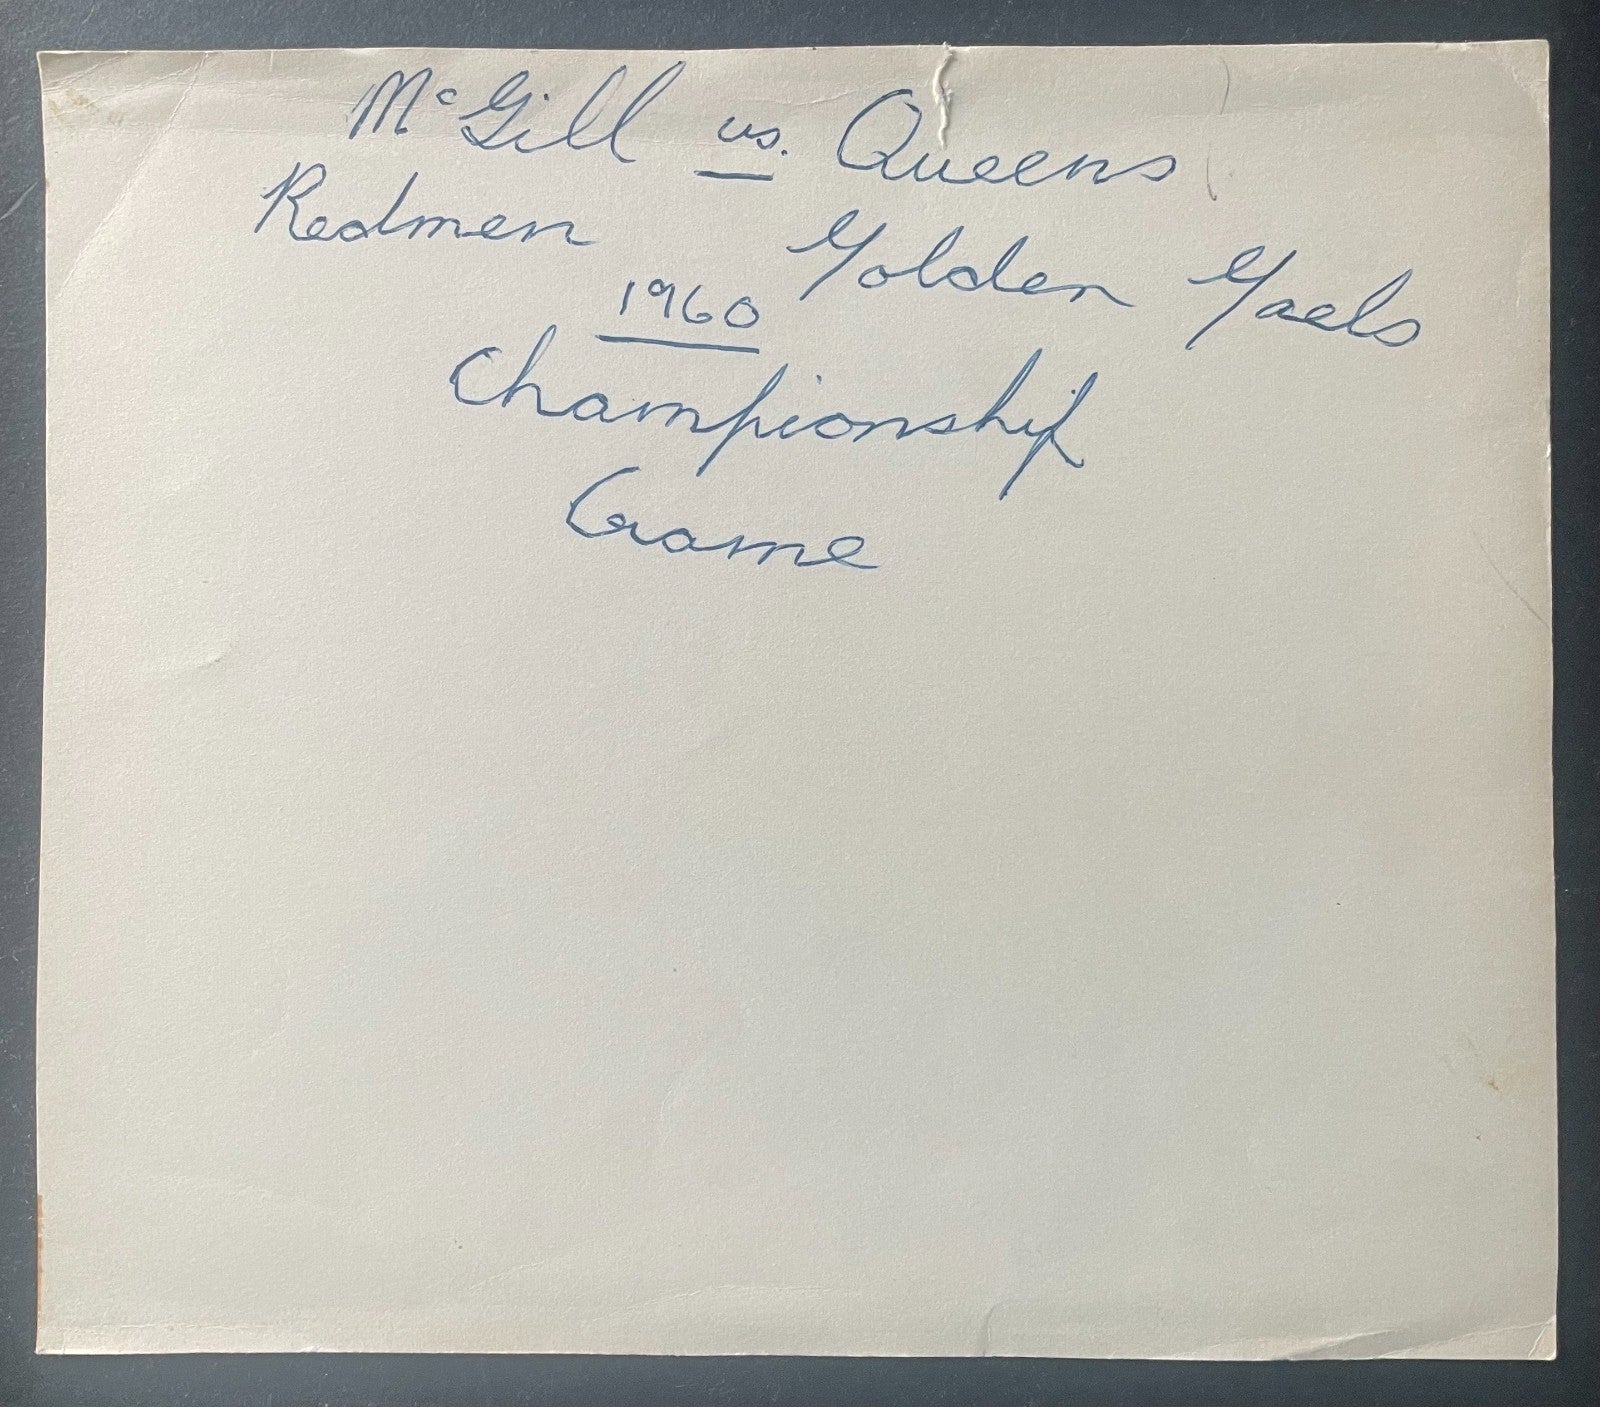 McGill vs. Queens
Redmen Golden Gaels
1960
Championship
Game